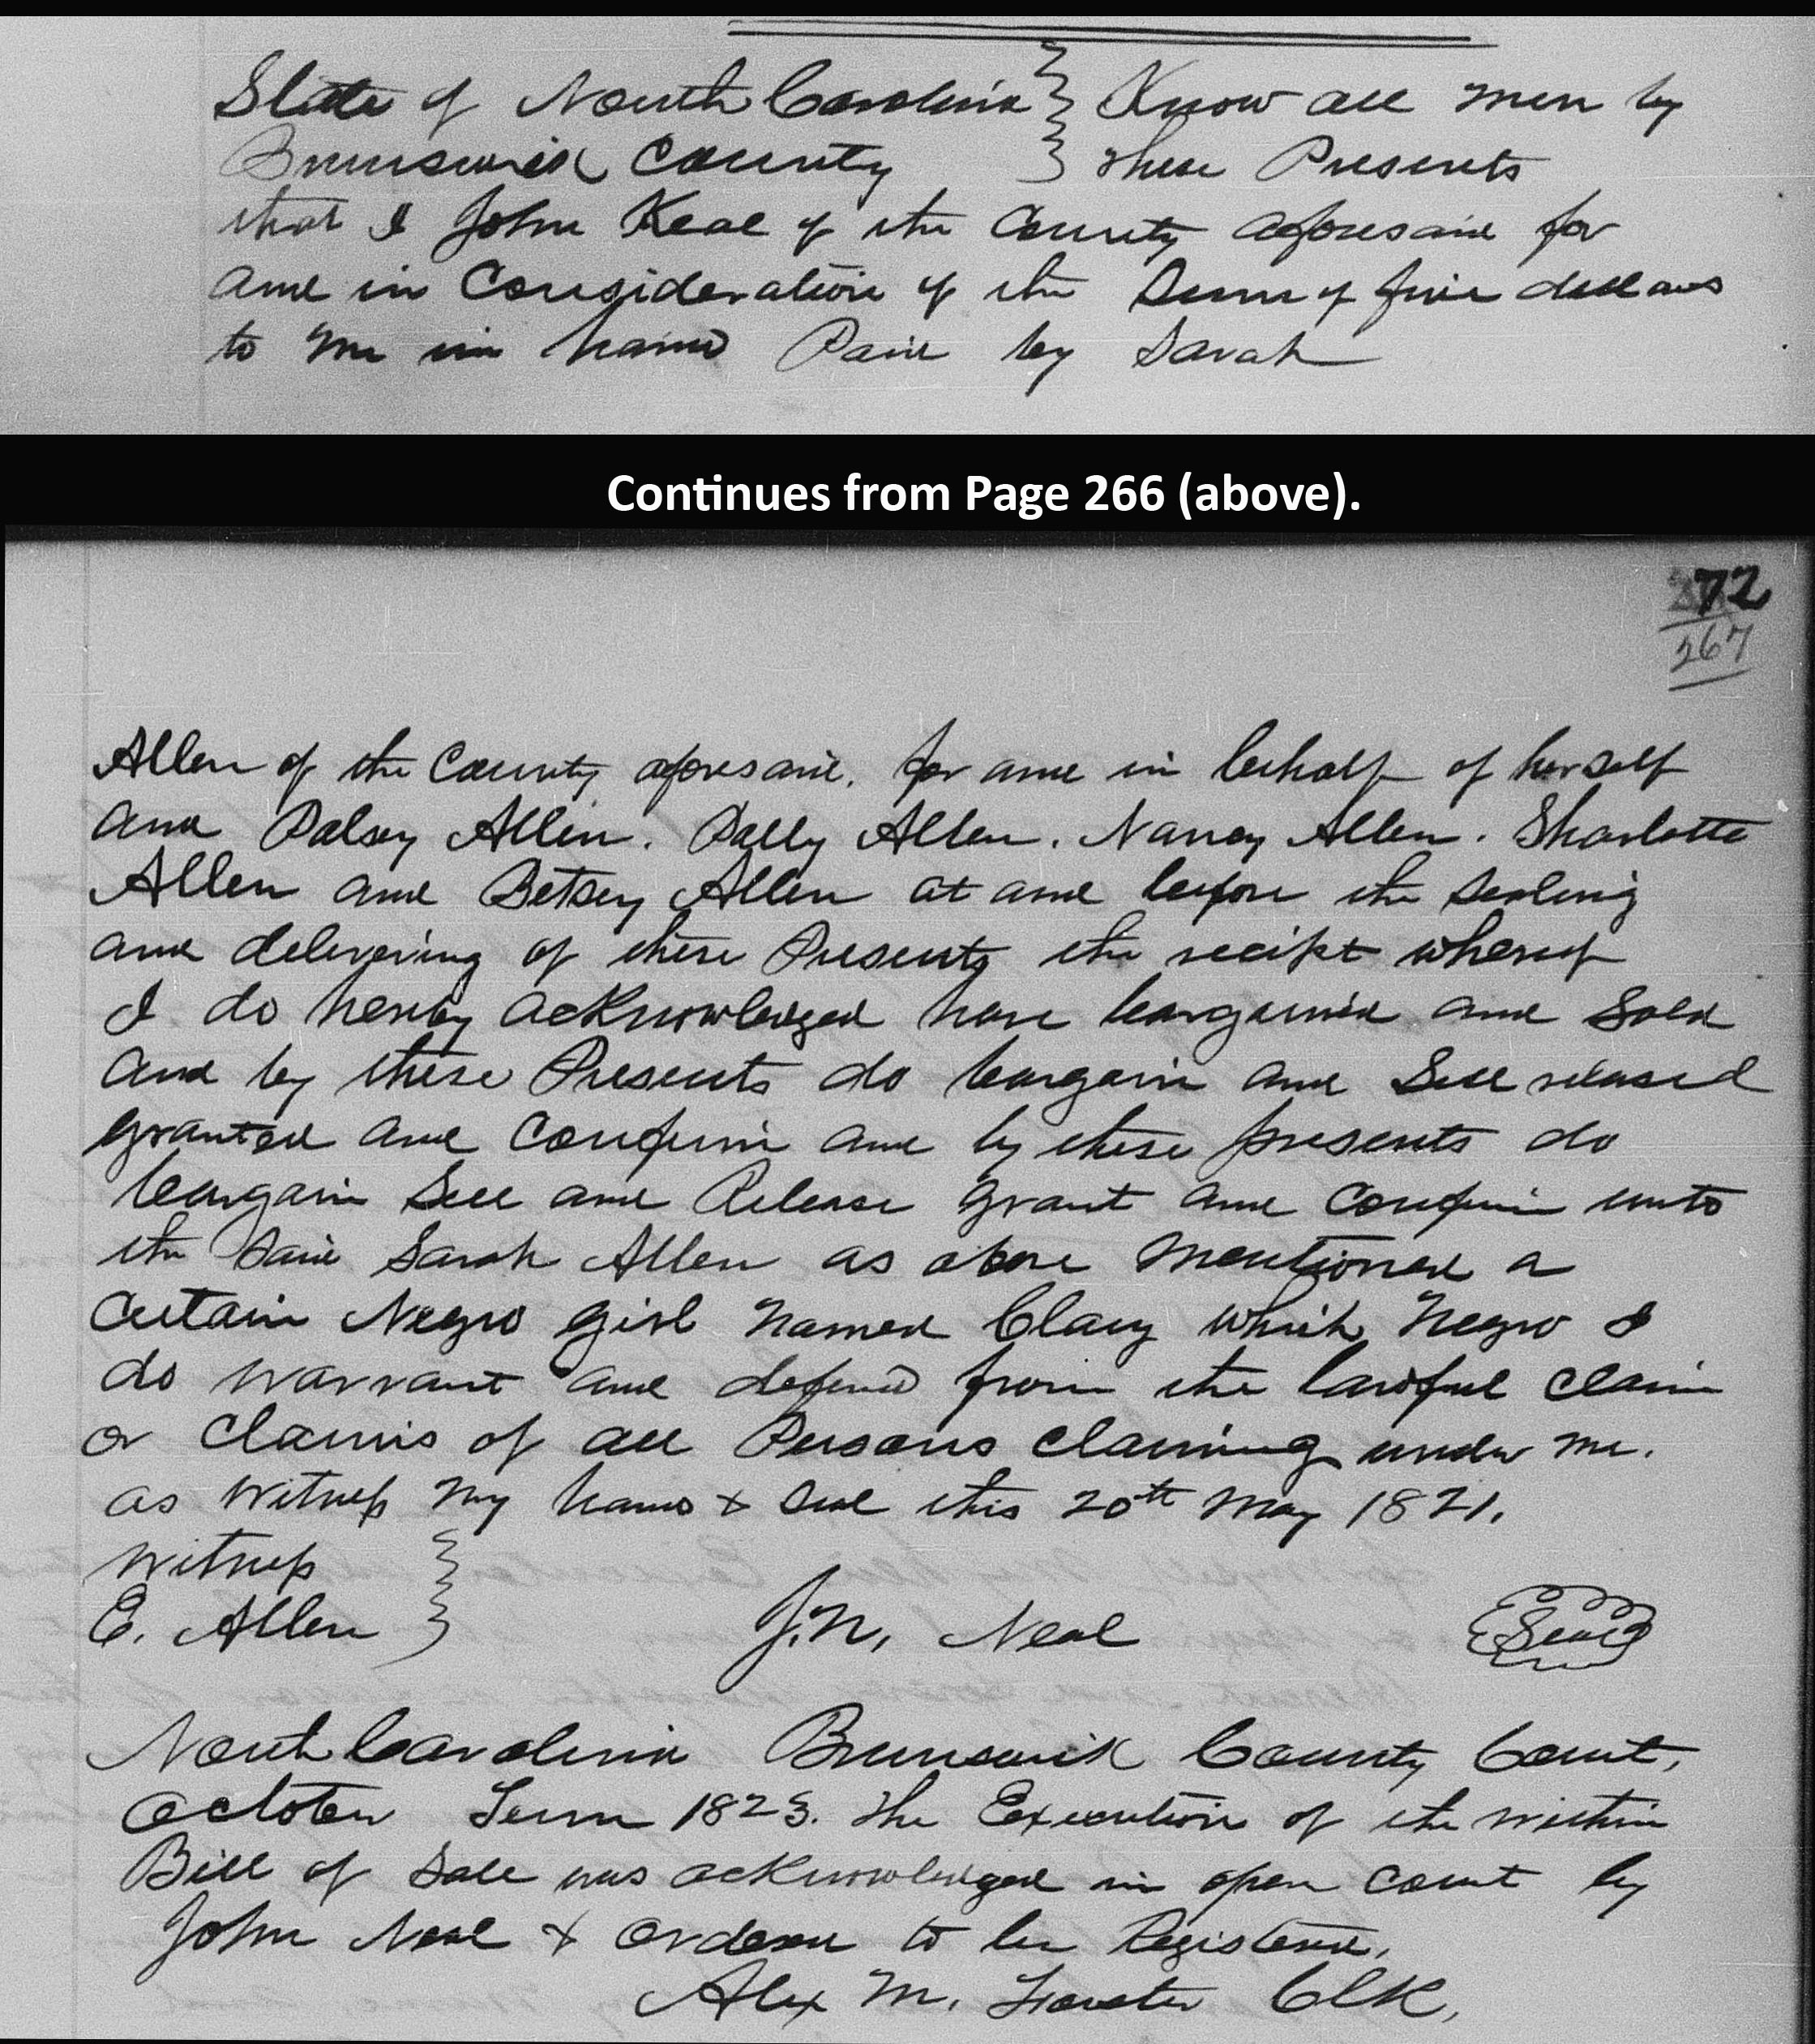 State of North Carolina } Know all men by
Brunswick County } these Presents
that I John Keal of the County aforesaid for
and in Consideration of the Sum of five dollars
to me in hand Paid by Sarah
Continues from Page 266 (above).
272
267
Allen of the County aforesaid. for and in behalf of herself
and Patsey Allen. Polly Allen. Nancy Allen. Sharlotte
Allen and Betsey Allen at and before the sealing
and delevering of these Presents the recipt whereof
I do hereby acknowledged have bargained and Sold
and by these Presents do bargain and Sell released
granted and Confirm and by these presents do
bargain Sell and Release grant and Confirm unto
the said Sarah Allen as above mentioned a
Certain Negro girl named Clary which Negro I
do warrant and defend from the lawful claim
or claims of all Persons claiming under me.
as witness my hand + seal this 20th May 1821.
Witness }
E. Allen }
J.N. Neal Seal
North Carolina Brunswick County Court,
October Term 1823. the Execution of the within
Bill of Sale was acknowledged in open court by
John Neal + ordered to be Registered.
Alex M. Clk.